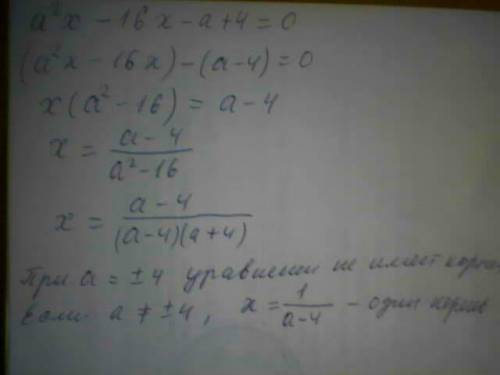 a²x - 16x - a + 4 = 0
(a²x - 16x) - (a - 4) = 0
x(a² - 16) = a - 4
x = \frac{a - 4}{a² - 16}
x = \frac{a - 4}{(a - 4)(a + 4)}
При a = ±4 уравнение не имеет корней
Если a ≠ ±4, x = \frac{1}{a - 4} - один корень